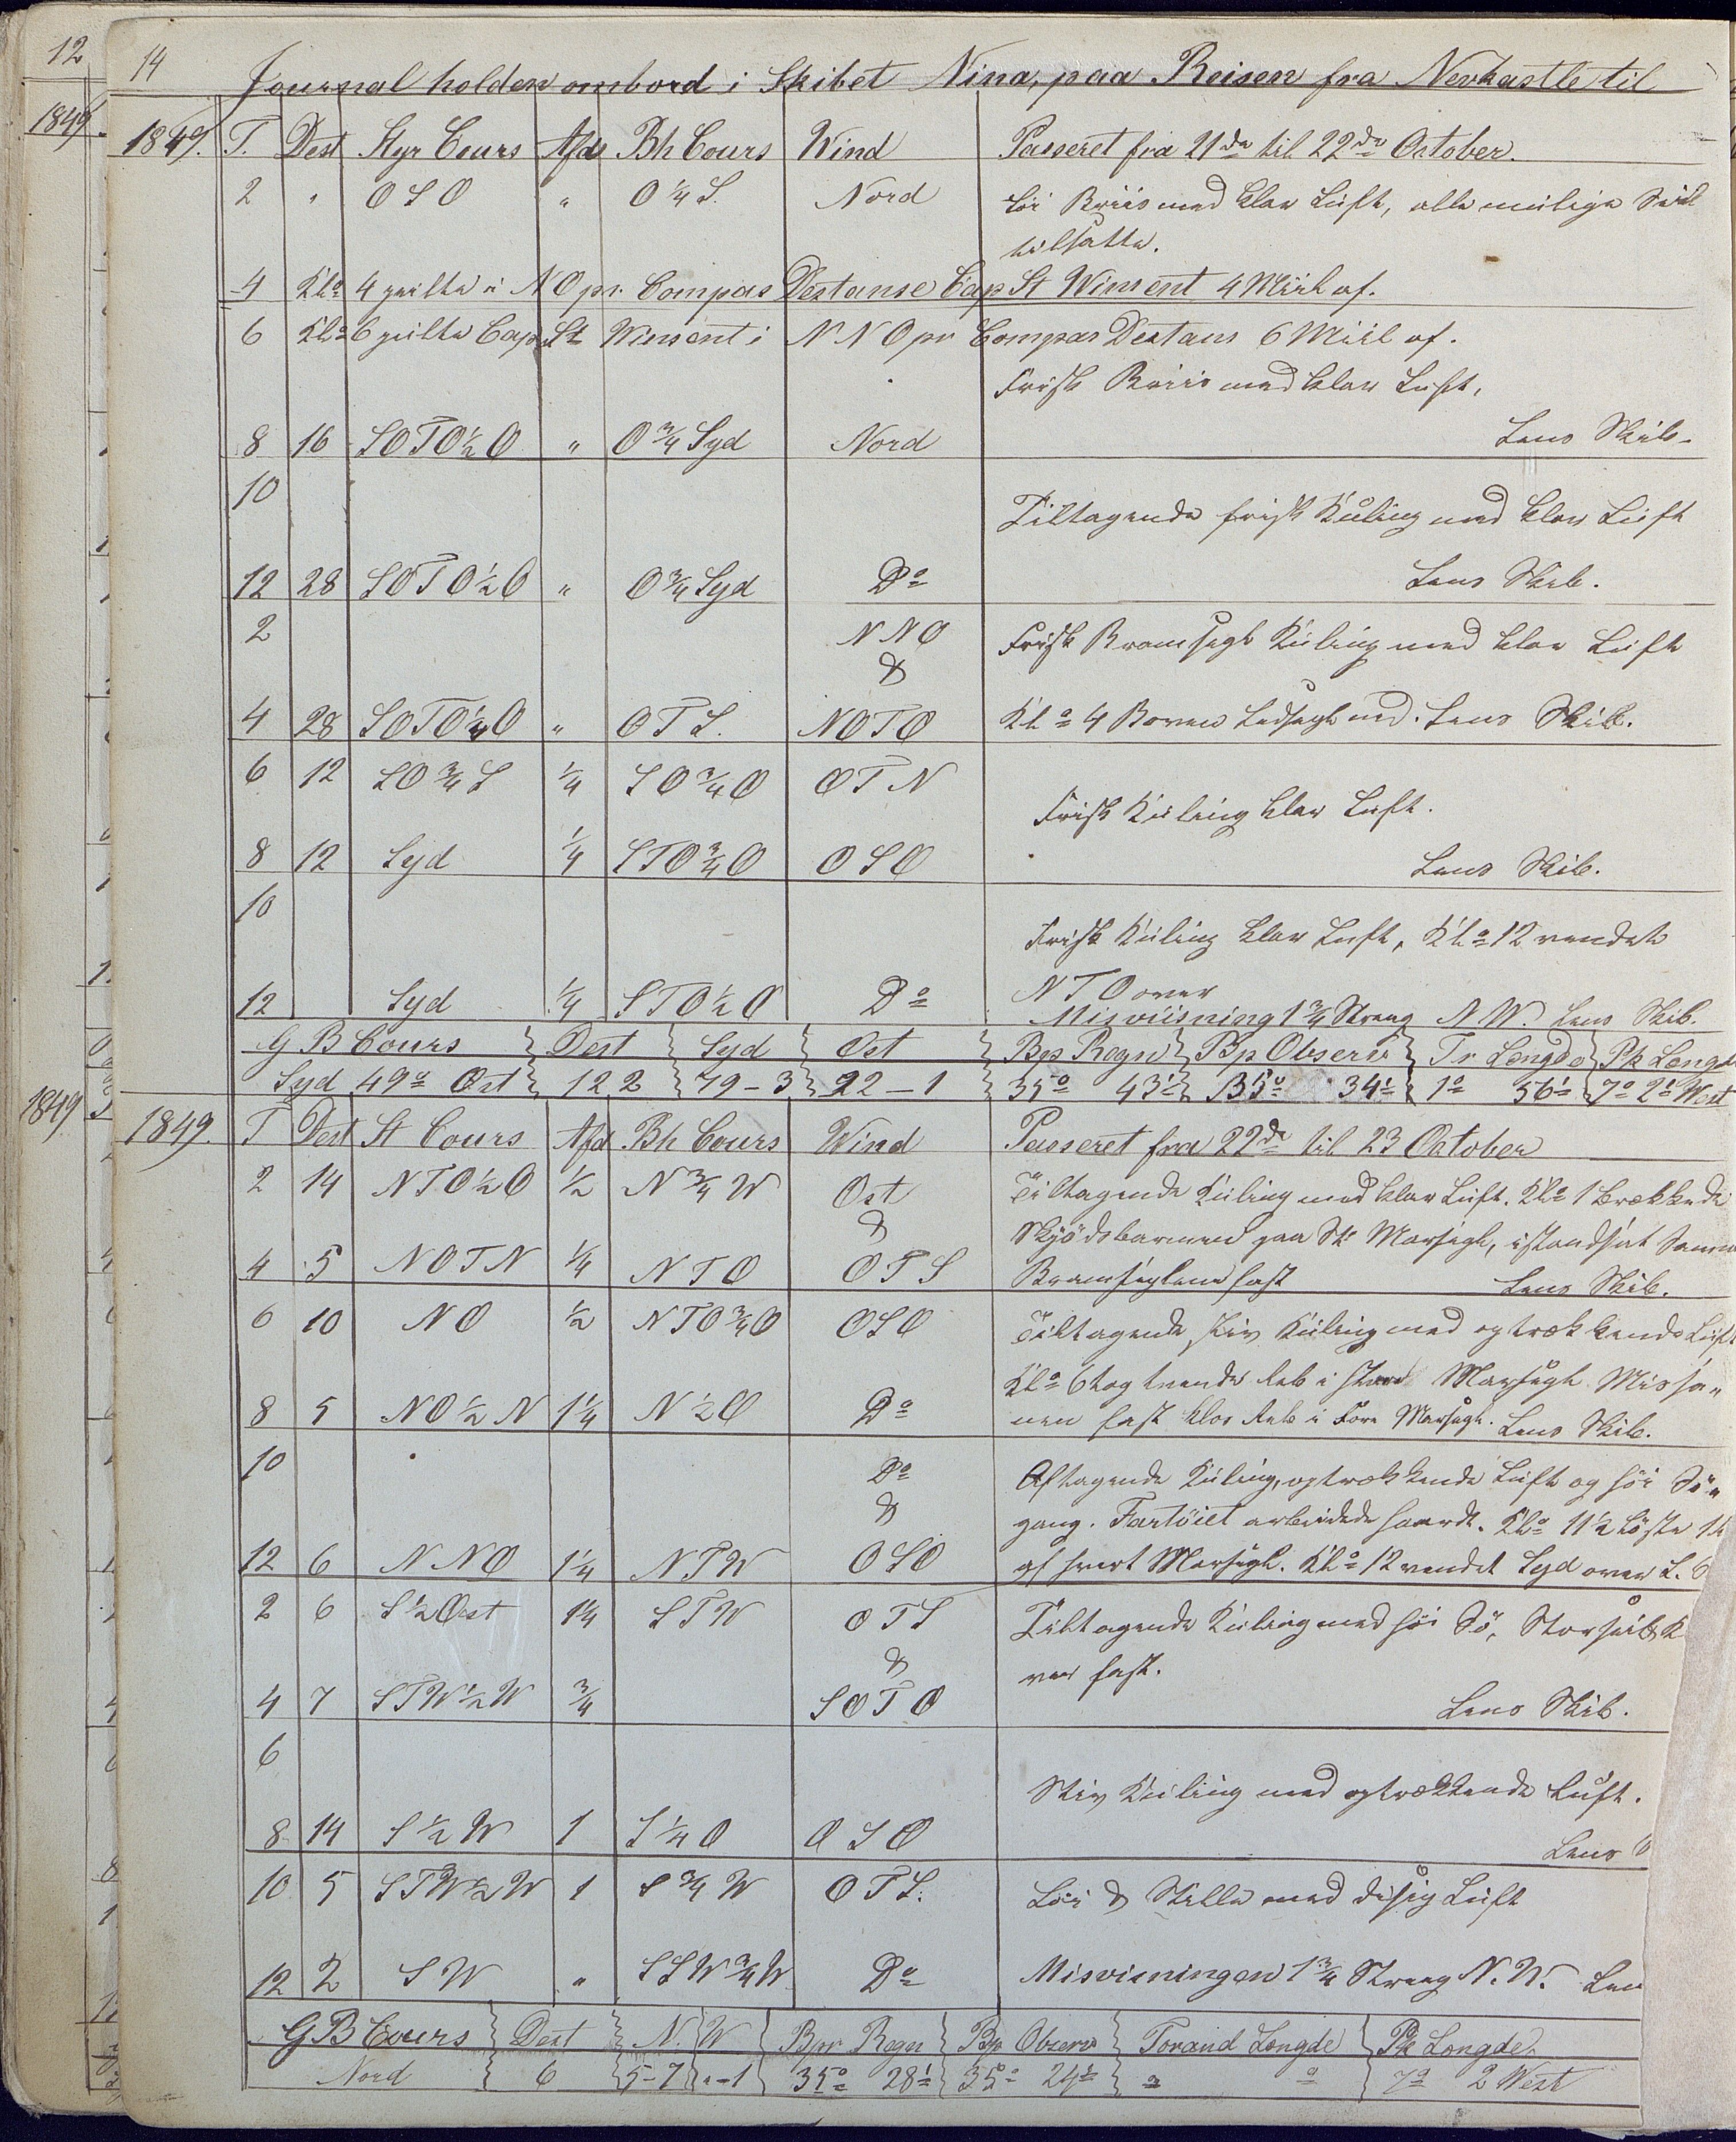 12
1849
1849
14
Journal holden ombord i Skibet Nina, paa Reisen fra Nevkastle til
1849. T. Dest Styr Cours Afds Bh Cours Wind Passeret fra 21de til 22de October.
2 " O S O " O ¼ S. Nord Löi Briis med klar Luft, alle mulige Seil
tilsatte.
4 Klo 4 peilte i N O pr. Compas Destanse Cap St Winsent 4 Miil af.
6 Klo 6 peilte Cap St Winsent i N N O pr Compas Destans 6 Miil af.
Frisk Briis med klar Luft,
8 16 SOTO½O " O¾Syd Nord Lens Skib.
10
Tiltagende frisk Kuling med klar Luft
12 28 SOTO½O " O¾Syd Do Lens Skib.
2 NNO Frisk Bramsegls Kuling med klar Luft
&
4 28 SOTO¼O " OTS. NOTO Klo 4 Boven Ledsegl ned. Lens Skib.
6 12 SO¾S ¼ SO¾O OTN
Frisk Kuling klar Luft.
8 12 Syd ¼ STO¾O OSO Lens Skib.
10
Frisk Kuling klar Luft, Klo 12 vendete
12 Syd ¼ STO½O Do NTO over
Misviisning 1¾ Streg N.W. Lens Skib.
G B Cours Dest Syd Ost Bp Regn Bp Observ Tr Lengde Pk Lengd
Syd 49o Ost 122 79-3 92-1 35o 43' 35o 34' 1o 56' 7o 2' West
1849. T Dest St Cours Afd Bh Cours Wind Passeret fra 22de til 23 October
2 14 NTO½O ½ N¾W Ost Tiltagende Kuling med klar Luft. Klo 1 brækkede
& Skjödsbarmen paa St Marsegl, istandsat Samme
4 5 NOTN ¼ NTO OTS Bramseglene fast Lens Skib.
6 10 NO ½ NTO¾O OSO Tiltagende stiv Kuling med optrækkende Luft
Klo 6 tog trende Reb i Marsegl Missa„
8 5 NO½N 1¼ N½O Do nen fast klos Reb i Fore Marsegl. Lens Skib.
10 Do Aftagende Kuling, optrækkende Luft og höi Sö„
& gang. Fartöiet arbeidede haardt. Klo 11½ löste 1R
12 6 NNO 1¼ NTW OSO af hvert Marsegl. Klo 12 vendet Syd over L. S
2 6 S½Ost 1¼ STW OTS Tiltagende Kuling med höi Sö, Storseilet K
& ver fast.
4 7 STW½W ¾ SOTO Lens Skib.
6
Stiv Kuling med optrækkende Luft.
8 14 S½W 1 S¼O OSO Lens S
10 5 STW½W 1 S¾W OTS. Löi & Stille med disig Luft
12 2 SW " SSW¾W Do Misvisningen 1¾ Streg N.W. Len
G B Cours Dest N. W Bpr Regn Bp Observ Forand Longde Pk Longde
Nord 6 5-7 "-1 35o 28' 35o 24' " o 7o 2 West